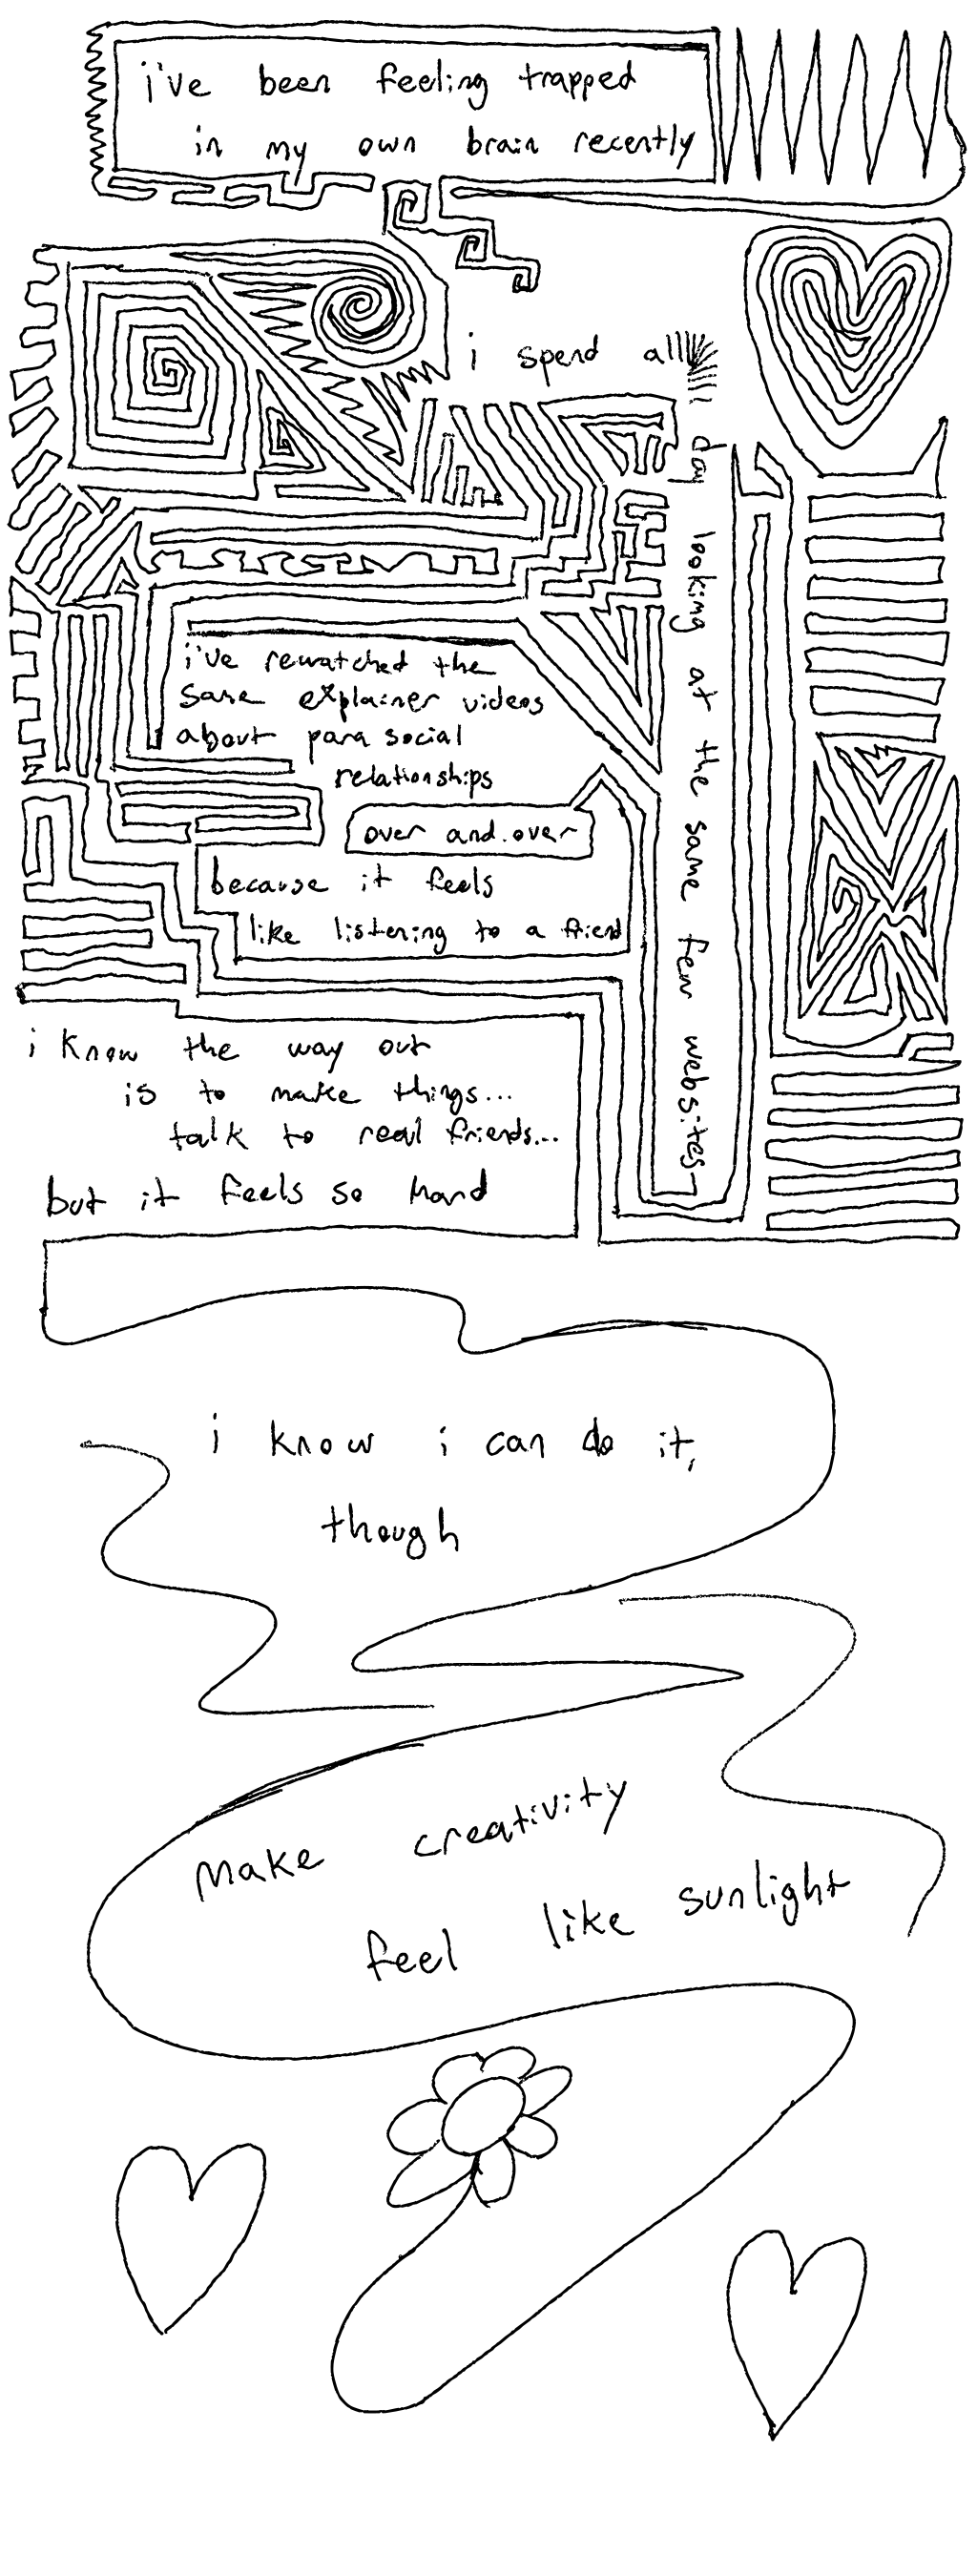 i've been feeling trapped
in my own brain recently
i spend all
day looking at the same few websites
i've rewatched the
same explainer videos
about para social
relationships
over and over
because it feels
like listening to a friend
i know the way out
is to make things...
talk to real friends...
but it feels so hard
i know i can do it,
though
make creativity
feel like sunlight